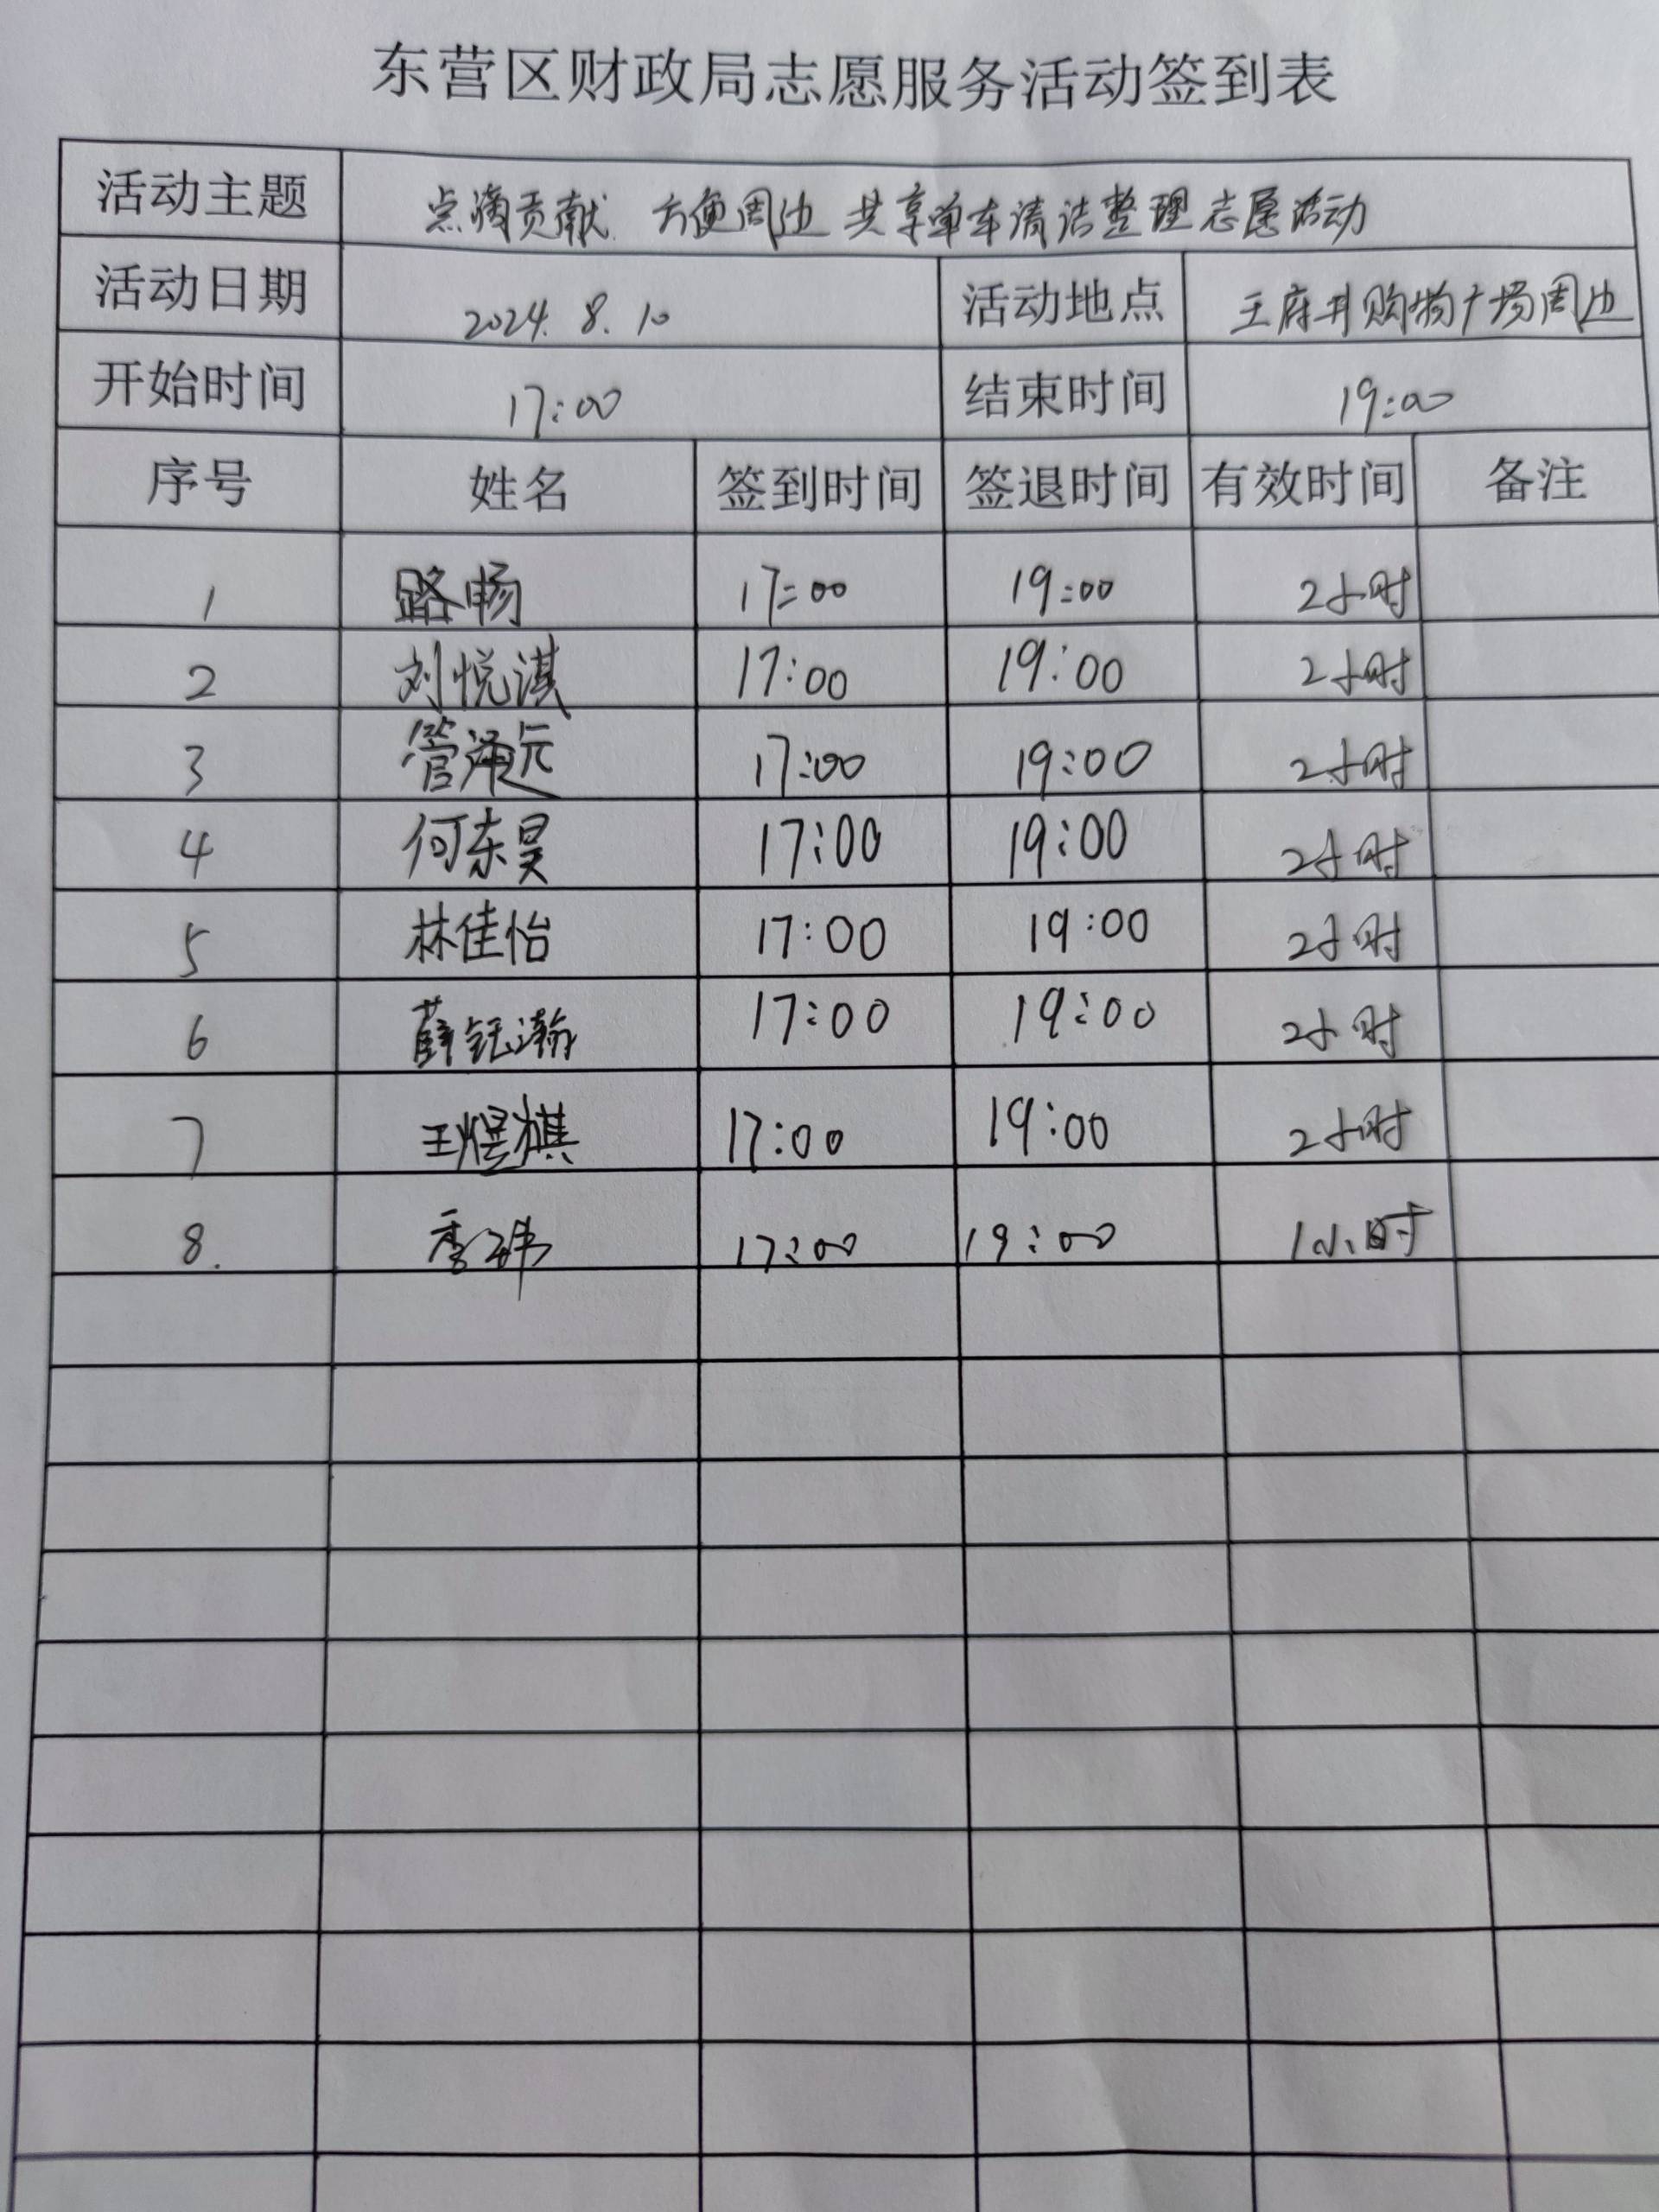 东营区财政局志愿服务活动签到表
活动主题 点滴贡献 方便周边 共享单车清洁整理志愿活动
活动日期 2024.8.10 活动地点 王府井购物广场周边
开始时间 17:00 结束时间 19:00
序号 姓名 签到时间 签退时间 有效时间 备注
1 路畅 17:00 19:00 2小时
2 刘悦淇 17:00 19:00 2小时
3 管泽远 17:00 19:00 2小时
4 何东昊 17:00 19:00 2小时
5 林佳怡 17:00 19:00 2小时
6 薛钰瀚 17:00 19:00 2小时
7 王煜祺 17:00 19:00 2小时
8. 17:00 19:00 1小时